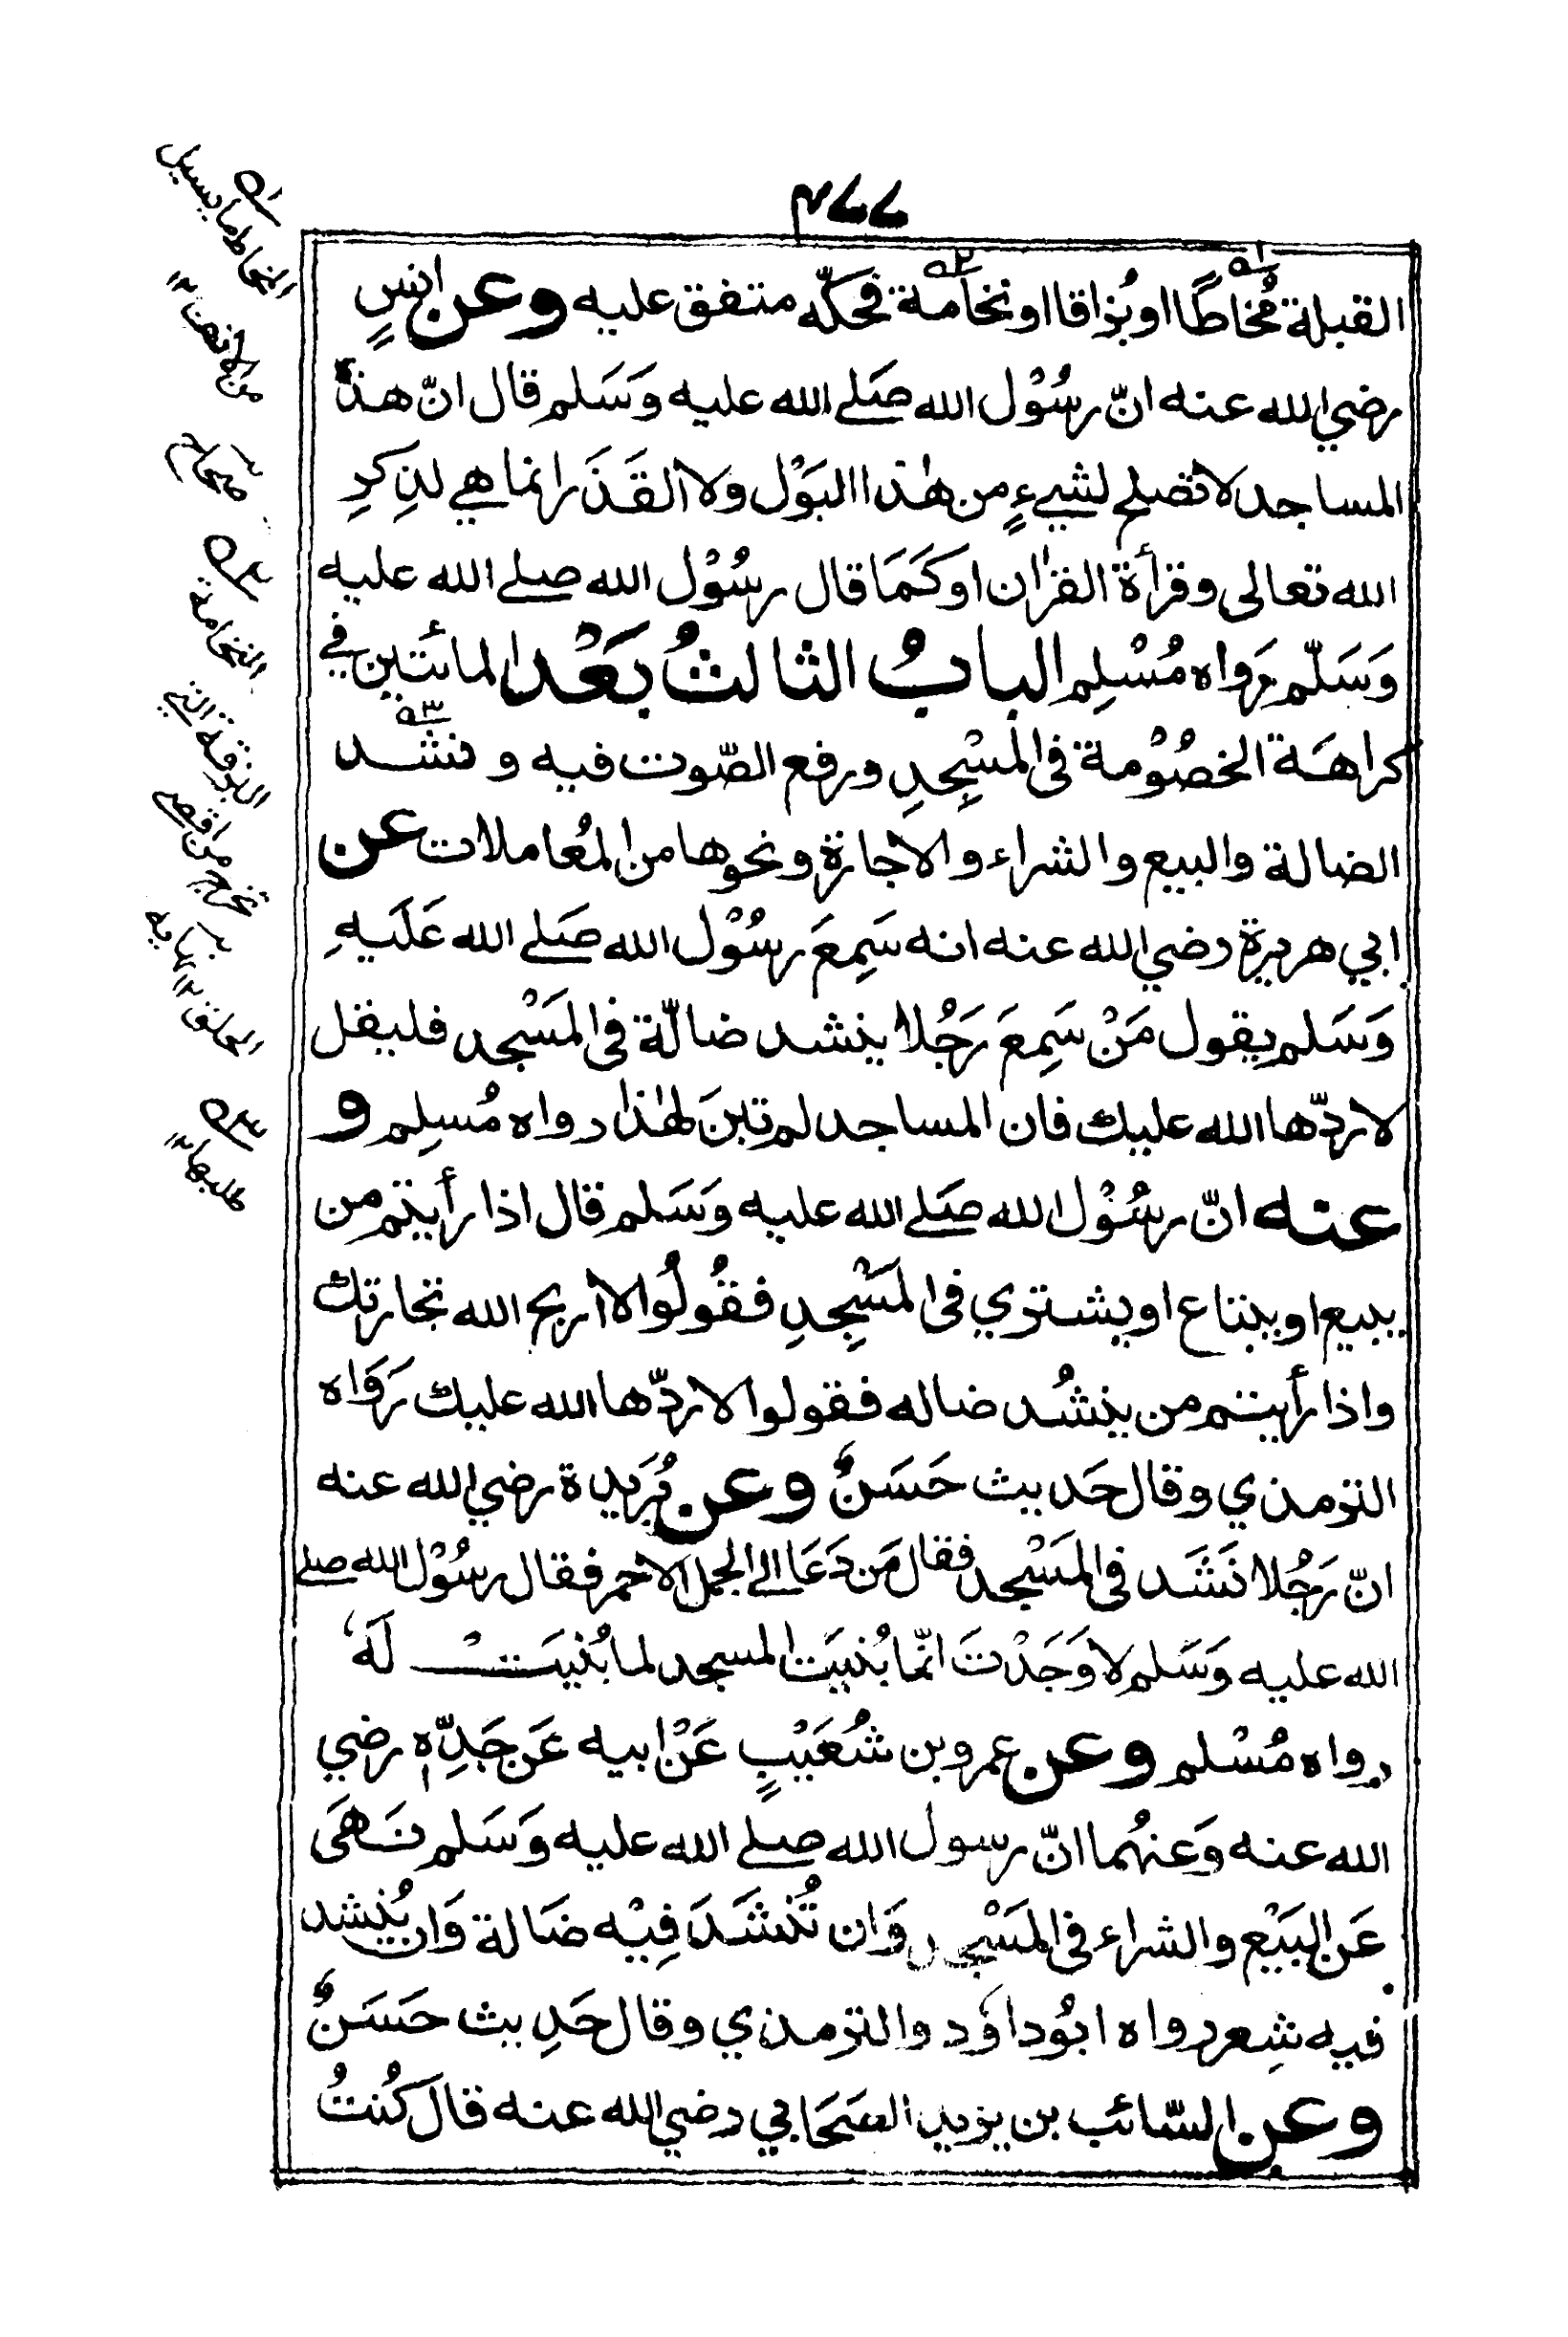 ٤٦٦
القبلة مُخاطًا او بُزاقا او نخامة فحكّه متفق عليه وعن انسٍ
رضي الله عنه انّ رسُوْل الله صَلے الله عليه وَسَلم قال انّ هذه
المساجد لا تصلح لشيءٍ من هٰذا البَوْل ولا القَذَر انما هي لذِكرِ
الله تعالى وقرأة القرٰان او كَمَا قال رسُوْل الله صلے الله عليه
وَسَلّم رَواه مُسْلِم البابُ الثالثُ بَعْد المائتين في
كراهَة الخصُوْمة فى المَسْجِدِ ورفع الصّوت فيه و نشْد
الضالة والبيع والشراء والاجارة ونحوها من المُعاملات عن
ابي هريرة رضي الله عنه انه سَمِعَ رسُوْل الله صَلے الله عَلَيهِ
وَسَلم يقول مَنْ سَمِعَ رَجُلا ينشد ضالّة فى المَسْجد فليقل
لا ردّها الله عليك فان المساجد لم تبنَ لهٰذا رواه مُسلِم و
عنه انّ رسُوْل الله صَلے الله عليه وَسَلم قال اذا رأيتم من
يبيع او يبتاع او يشتري فى المَسْجِدِ فقُولُوا لا أربح الله تجارتك
واذا رأيتم من ينشُد ضاله فقولوا لا ردّها الله عليك رَوَاه
الترمذي وقال حَديث حَسَنٌ وعن بُرَيدة رضي الله عنه
انّ رَجُلا نَشَد فى المَسْجد فقال مَن دَعَا الے الجمل الاحمر فقال رسُوْل الله صلے
الله عليه وَسَلم لا وَجَدْتَ انّما بُنيَت المسجد لما بُنيَتْ لَهُ
رواه مُسْلم وعن عمرو بن شُعَيْبٍ عَنْ ابيه عَن جَدِّهٖ رضي
الله عنه وَعنهُما انّ رسول الله صلے الله عليه وَسَلم نَهَى
عَن البَيْع والشراء فى المَسْجد وَان تُنْشَدَ فِيْه ضَالة وَان يُنشد
فيه شِعر رواه ابُو داوٗد والترمذي وقال حَدِيث حَسَنٌ
وعن السّائب بن يزيد الصَحَابي رضي الله عنه قالَ كُنتُ
المخاط ما يسيل
من الانف
النخامة
البزقة التي
تخرج من اقصى
الحلق نهايه
طلبها